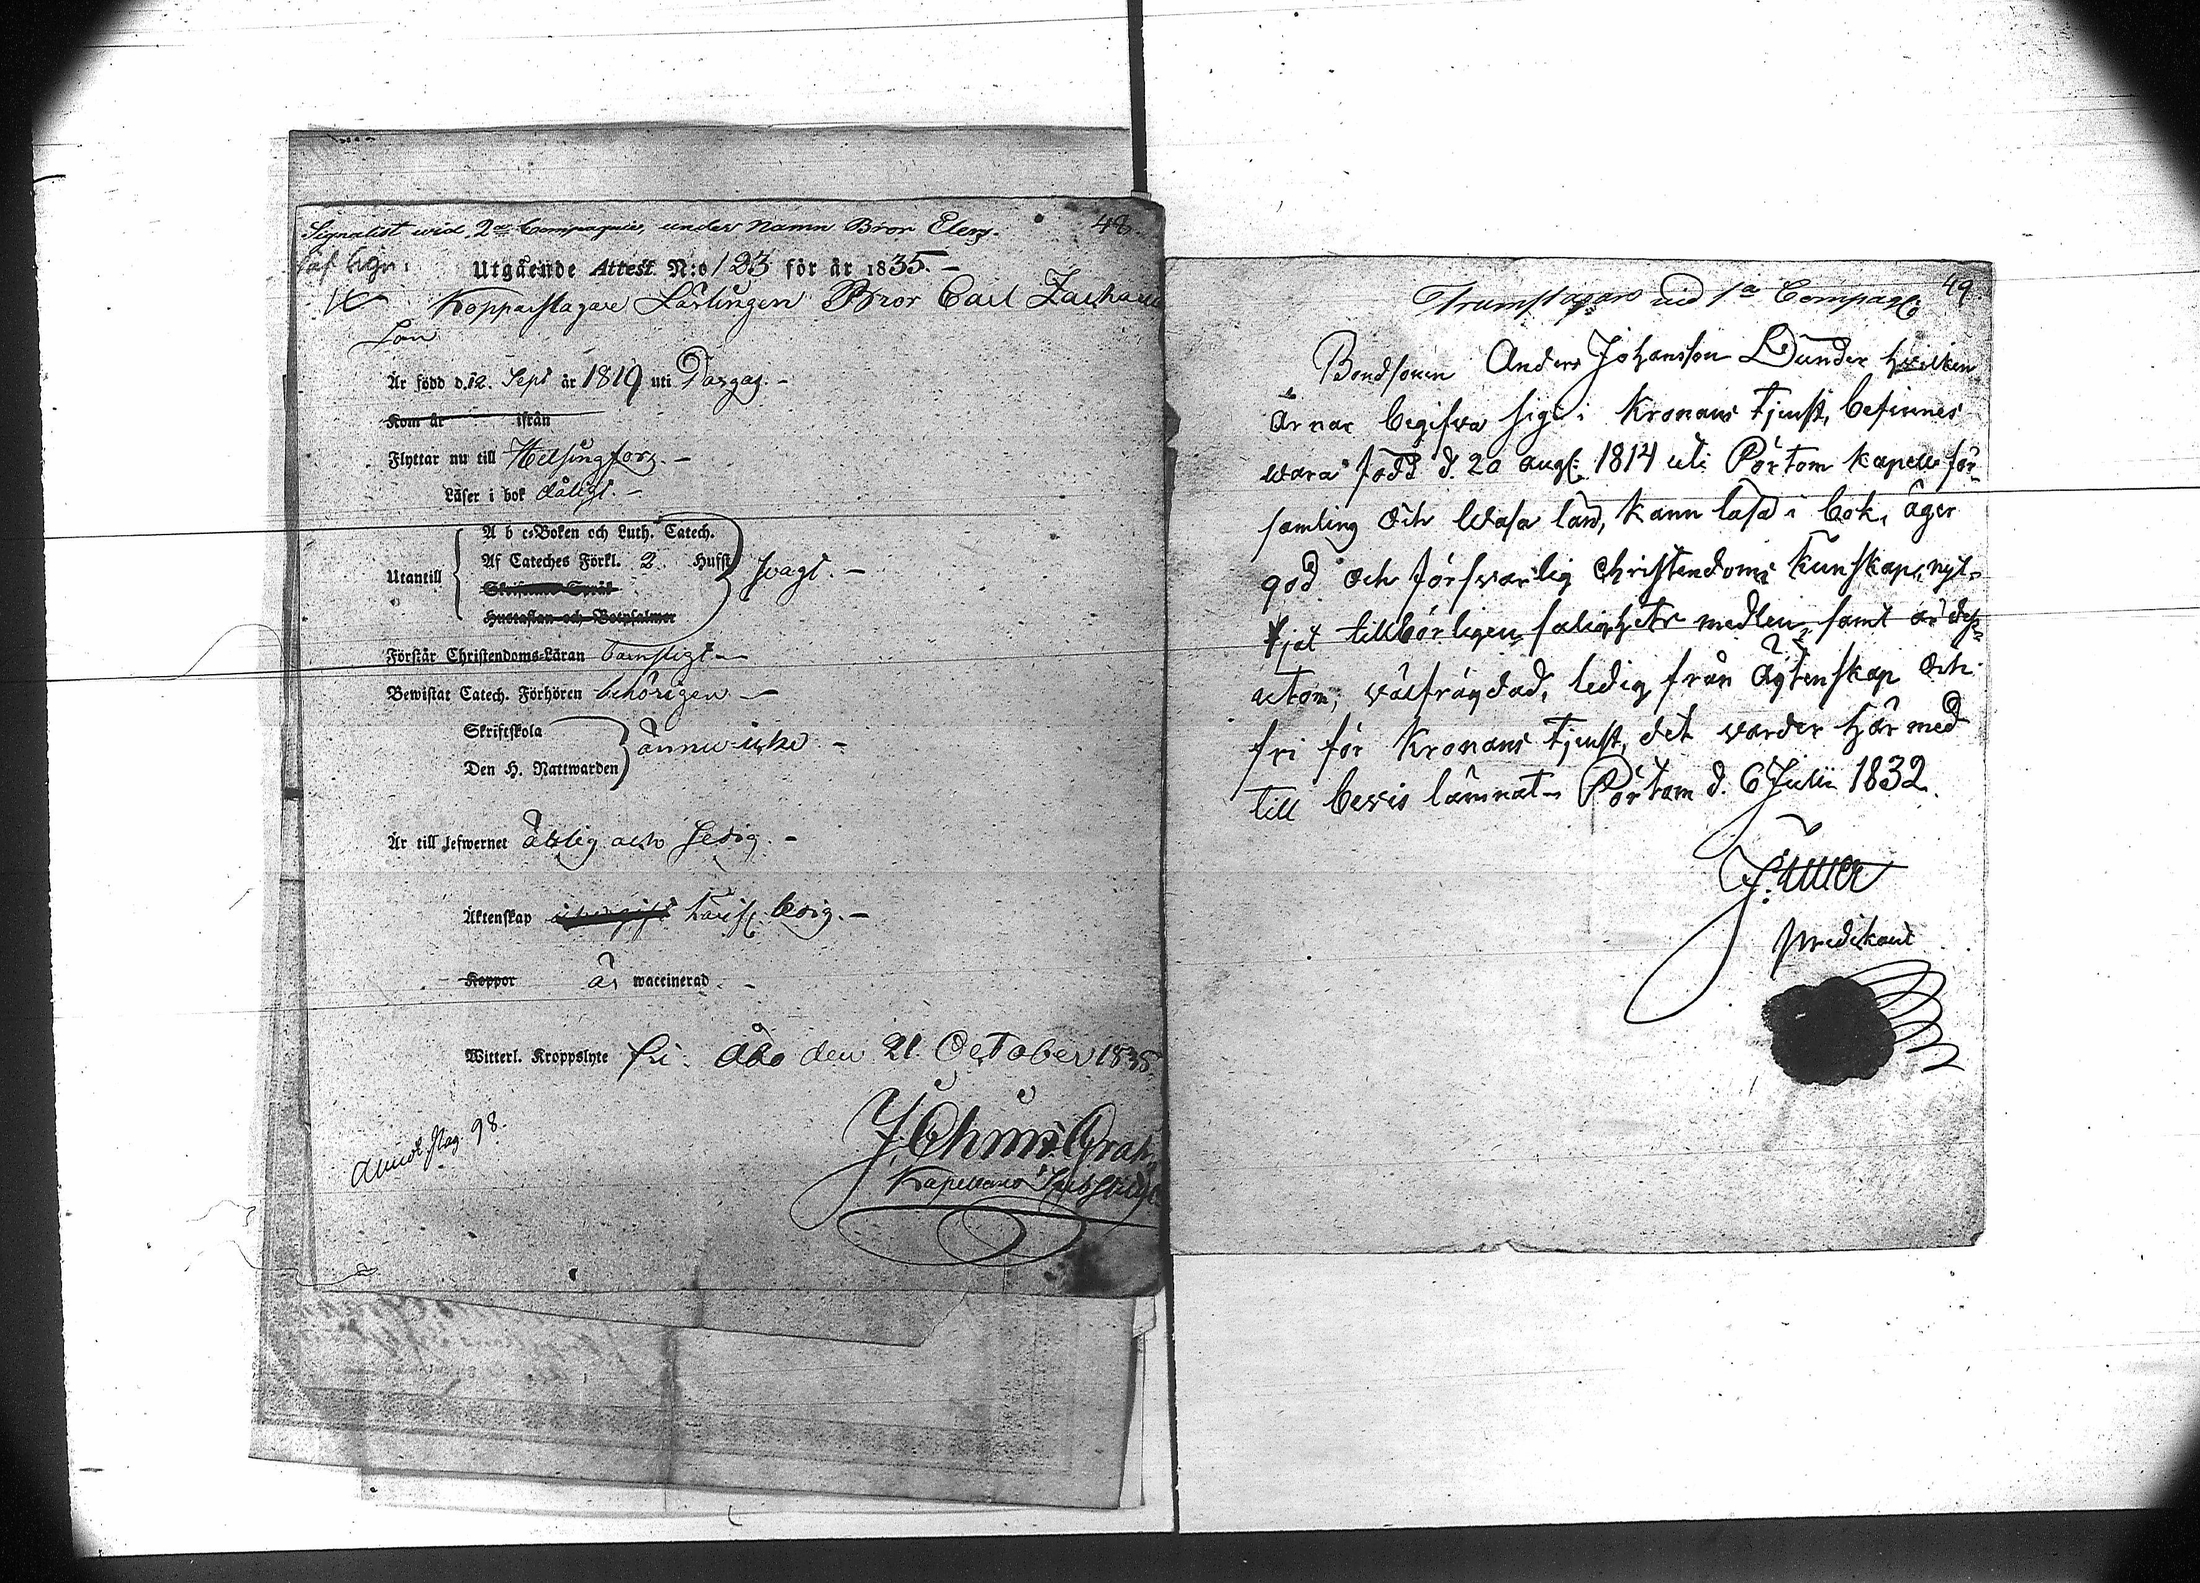 Signalist wid 2:a Compagnie, under Namn Bror Elers.
48.
Utgående Attest N:o 123 för år 1835. –
Kopparslagare Lärlingen Bror Carl Zacharia
Son
Är född d. 12. Sept år 1819 uti Pargas. –
Kom år ifrån
Flyttar nu till Helsingfors. –
Läser i bok dåligt. –
A b c-Boken och Luth. Catech.
Af Cateches Förkl. 2 Hufst
Utantill svagt. –
Skriftens Språk
Hustaflan och Botpsalmer
Förstår Christendoms-Läran
Bewistat Catech. Förhören behörigen –
Skriftskola
ännu icke –
Den H. Nattwarden
Är till lefwernet ärlig och sedig. –
Äktenskap ledig. –
Koppor är waccinerad –
Witterl. Kroppslyte fri. Åbo den 21. October 1835.
98.
49.
Trumslagare vid 1:a Compag:
Bondsonen Anders Johansson Dunder, hvilken
ärnar begifva sig i Kronans tjenst, befinnes
wara född d. 20 aug. 1814 uti Pörtom kapell för-
samling och Wasa län, kann läsa i bok, äger
god och försvarlig christendoms kunskap, nyt-
tjat tillbörligen salighets medlen, samt är dess-
utom, välfrägdad, ledig från ägtenskap och
fri för Kronans tjenst, det varder här med
till bevis lämnat. Pörtom d. 6 Julii 1832.
Predikant